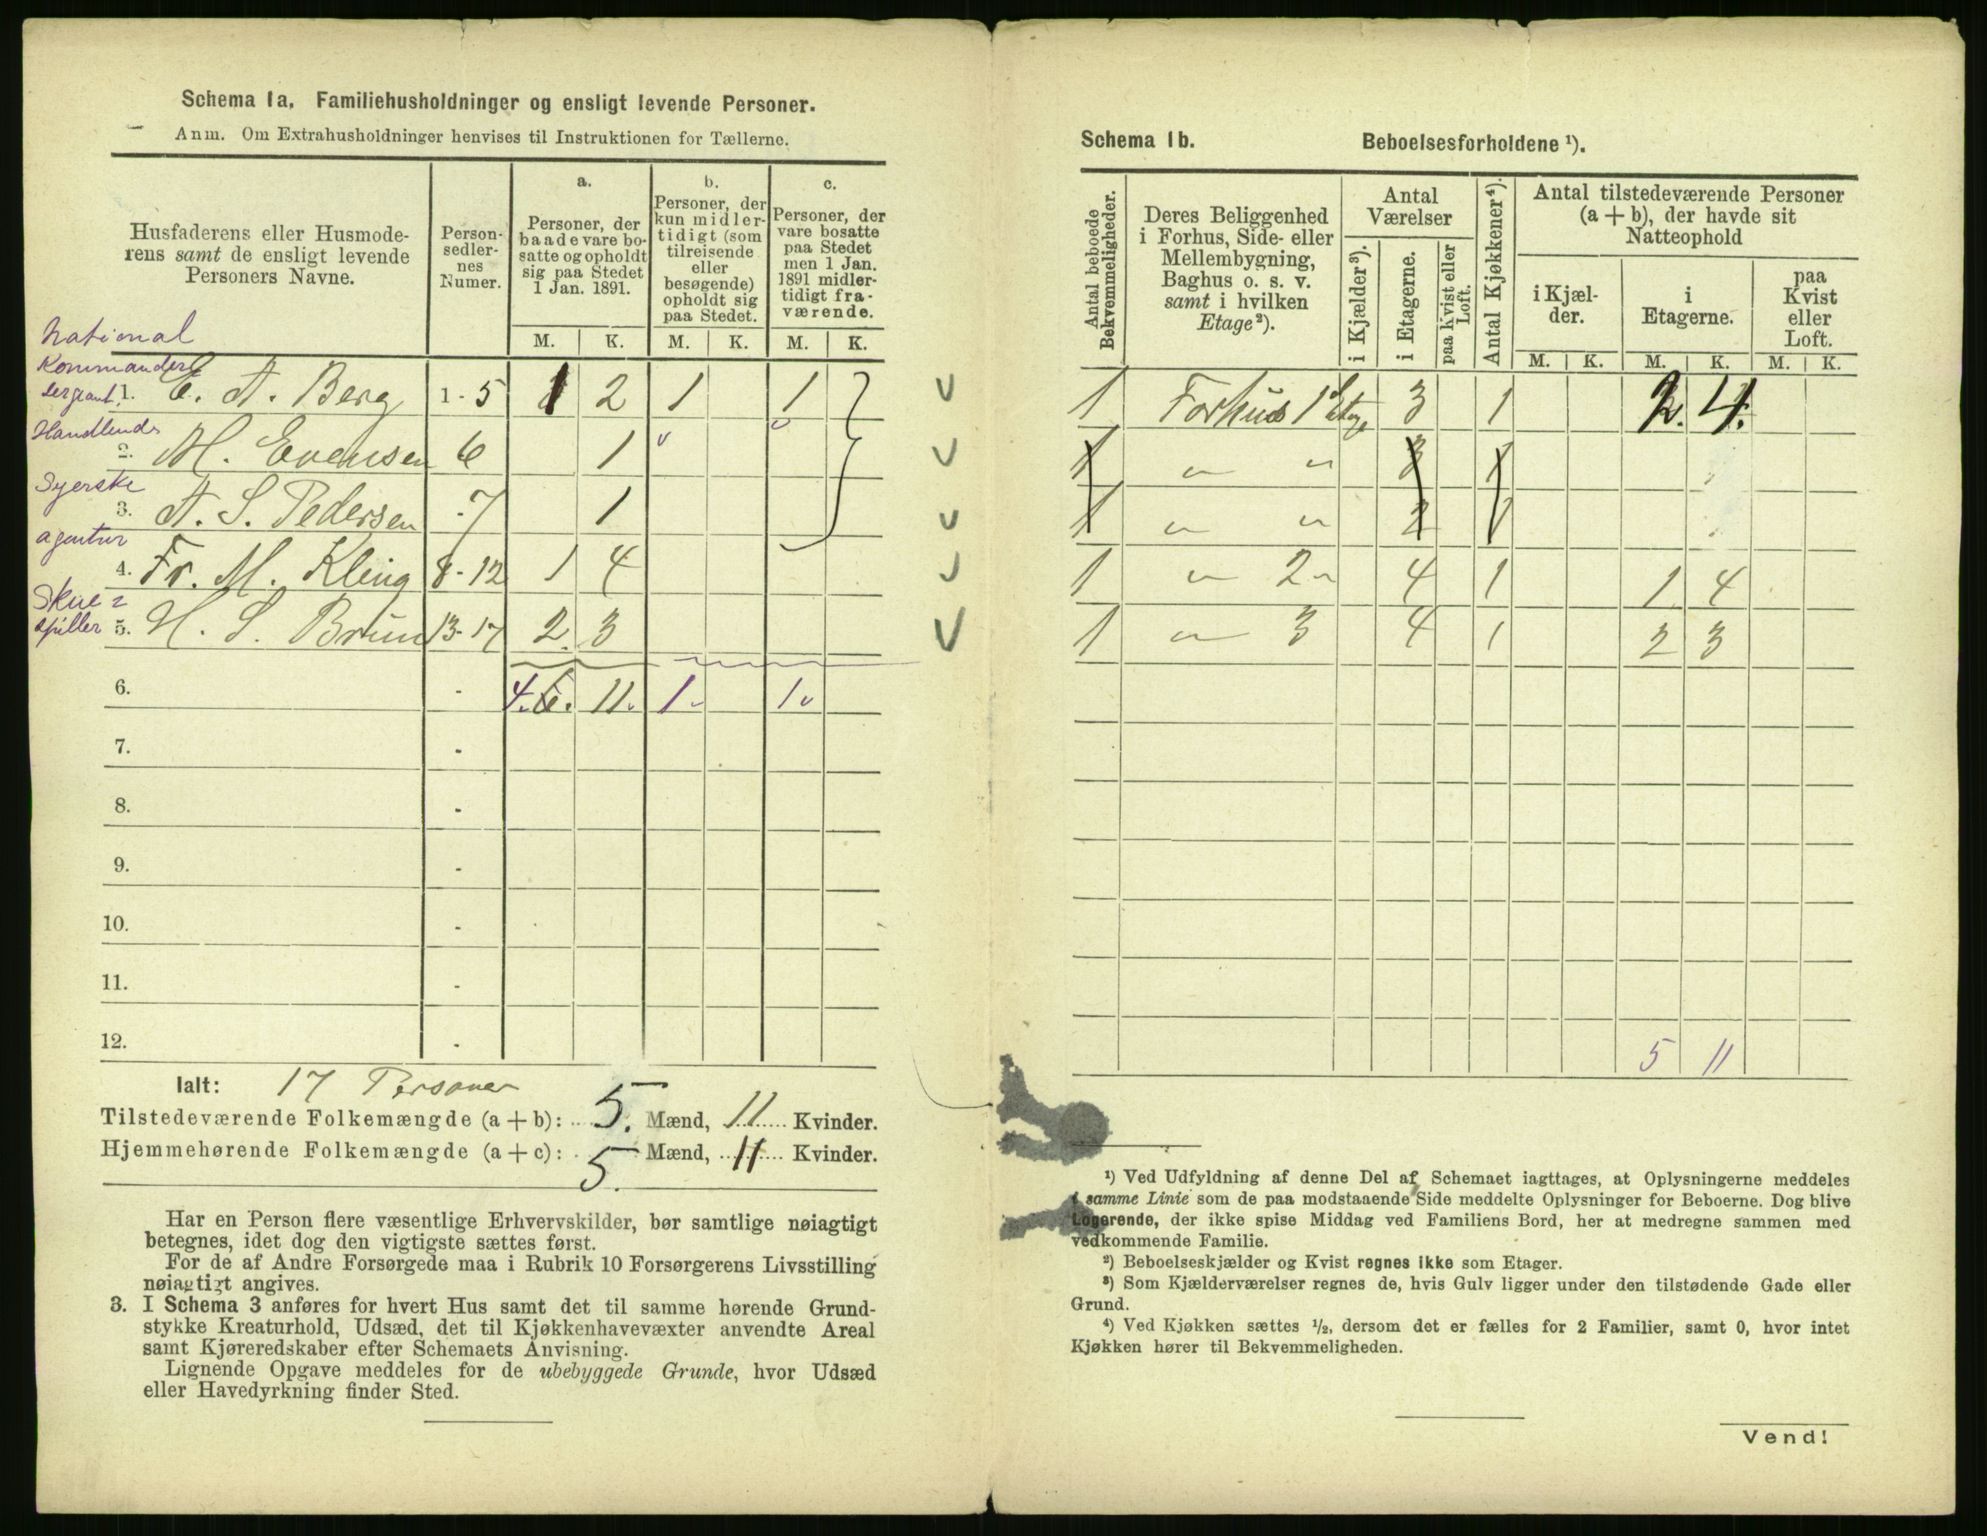 Schema 1a. Familiehusholdninger og ensligt levende Personer.
Anm. Om Extrahusholdninger henvises til Instruktionen for Tællerne.
Husfaderens eller Husmoderens samt de ensligt levende Personers Navne.
Person-
sedler-
nes
Numer.
a.
Personer, der
baade vare bo-
satte og opholdt
sig paa Stedet
1 Jan. 1891.
b.
Personer, der
kun midler-
tidigt (som
tilreisende
eller
besøgende)
opholdt sig
paa Stedet.
c.
Personer, der
vare bosatte
paa Stedet
men 1 Jan.
1891 midler-
tidigt fra-
værende.
M. K. M. K. M. K.
National
Kommander
sergeant 1. E. A. Berg 1-5 1 2 1 1
Handlende
2. M. Evensen 6 1
Syerske
3. A. S. Pedersen -7 1
agentur
4. Fr. M. Kling 8-12 1 4
Skue=
spiller 5. H. S. Brun 13-17 2 3
6. - 4. 6. 11. 1. 1.
7. -
8. -
9. -
10. -
11. -
12. -
Ialt: 17 Personer
Tilstedeværende Folkemængde (a + b): 5. Mænd, 11 Kvinder.
Hjemmehørende Folkemængde (a + c): 5. Mænd, 11 Kvinder.
Har en Person flere væsentlige Erhvervskilder, bør samtlige nøiagtigt
betegnes, idet dog den vigtigste sættes først.
For de af Andre Forsørgede maa i Rubrik 10 Forsørgerens Livsstilling
nøiagtigt angives.
3. I Schema 3 anføres for hvert Hus samt det til samme hørende Grund-
stykke Kreaturhold, Udsæd, det til Kjøkkenhavevæxter anvendte Areal
samt Kjøreredskaber efter Schemaets Anvisning.
Lignende Opgave meddeles for de ubebyggede Grunde, hvor Udsæd
eller Havedyrkning finder Sted.
Schema 1b. Beboelsesforholdene ¹).
Antal beboede
Bekvemmeligheder.
Deres Beliggenhed
i Forhus, Side- eller
Mellembygning,
Baghus o. s. v.
samt i hvilken
Etage²).
Antal
Værelser
i Kjælder³).
i Etagerne.
paa Kvist eller
Loft.
Antal Kjøkkener⁴).
Antal tilstedeværende Personer
(a + b), der havde sit
Natteophold
i Kjæl-
der.
i
Etagerne.
paa
Kvist
eller
Loft.
M. K. M. K. M. K.
1 Forhus 1 Etage 3 1 2. 4.
1 " " 3 1
1 " " 2 1
1 " 2 " 4 1 1 4
1 " 3 4 1 2 3
5 11
¹) Ved Udfyldning af denne Del af Schemaet iagttages, at Oplysningerne meddeles
i samme Linie som de paa modstaaende Side meddelte Oplysninger for Beboerne. Dog blive
Logerende, der ikke spise Middag ved Familiens Bord, her at medregne sammen med
vedkommende Familie.
²) Beboelseskjælder og Kvist regnes ikke som Etager.
³) Som Kjælderværelser regnes de, hvis Gulv ligger under den tilstødende Gade eller
Grund.
⁴) Ved Kjøkken sættes ½, dersom det er fælles for 2 Familier, samt 0, hvor intet
Kjøkken hører til Bekvemmeligheden.
Vend!